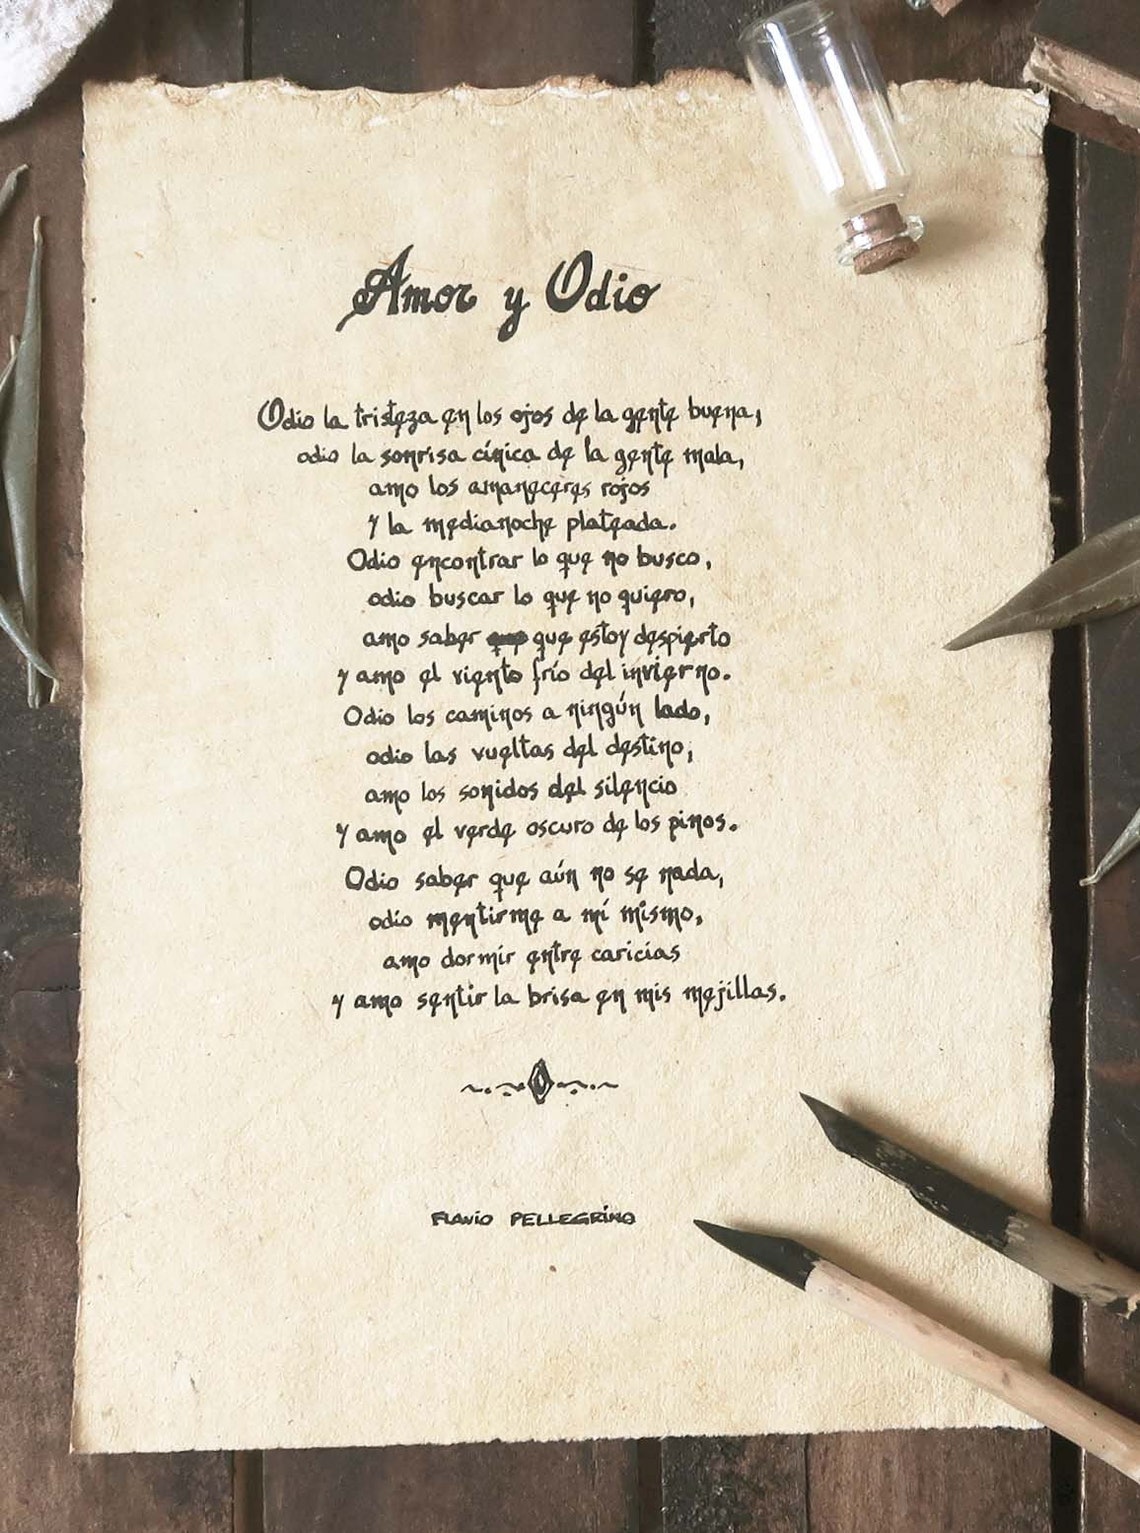 Amor y Odio
Odio la tristeza en los ojos de la gente buena,
odio la sonrisa cínica de la gente mala,
amo los amaneceres rojos
y la medianoche plateada.
Odio encontrar lo que no busco,
odio buscar lo que no quiero,
amo saber que estoy despierto
y amo el viento frío del invierno.
Odio los caminos a ningún lado,
odio las vueltas del destino,
amo los sonidos del silencio
y amo el verde oscuro de los pinos.
Odio saber que aún no se nada,
odio mentirme a mí mismo,
amo dormir entre caricias
y amo sentir la brisa en mis mejillas.
FLAVIO PELLEGRINO